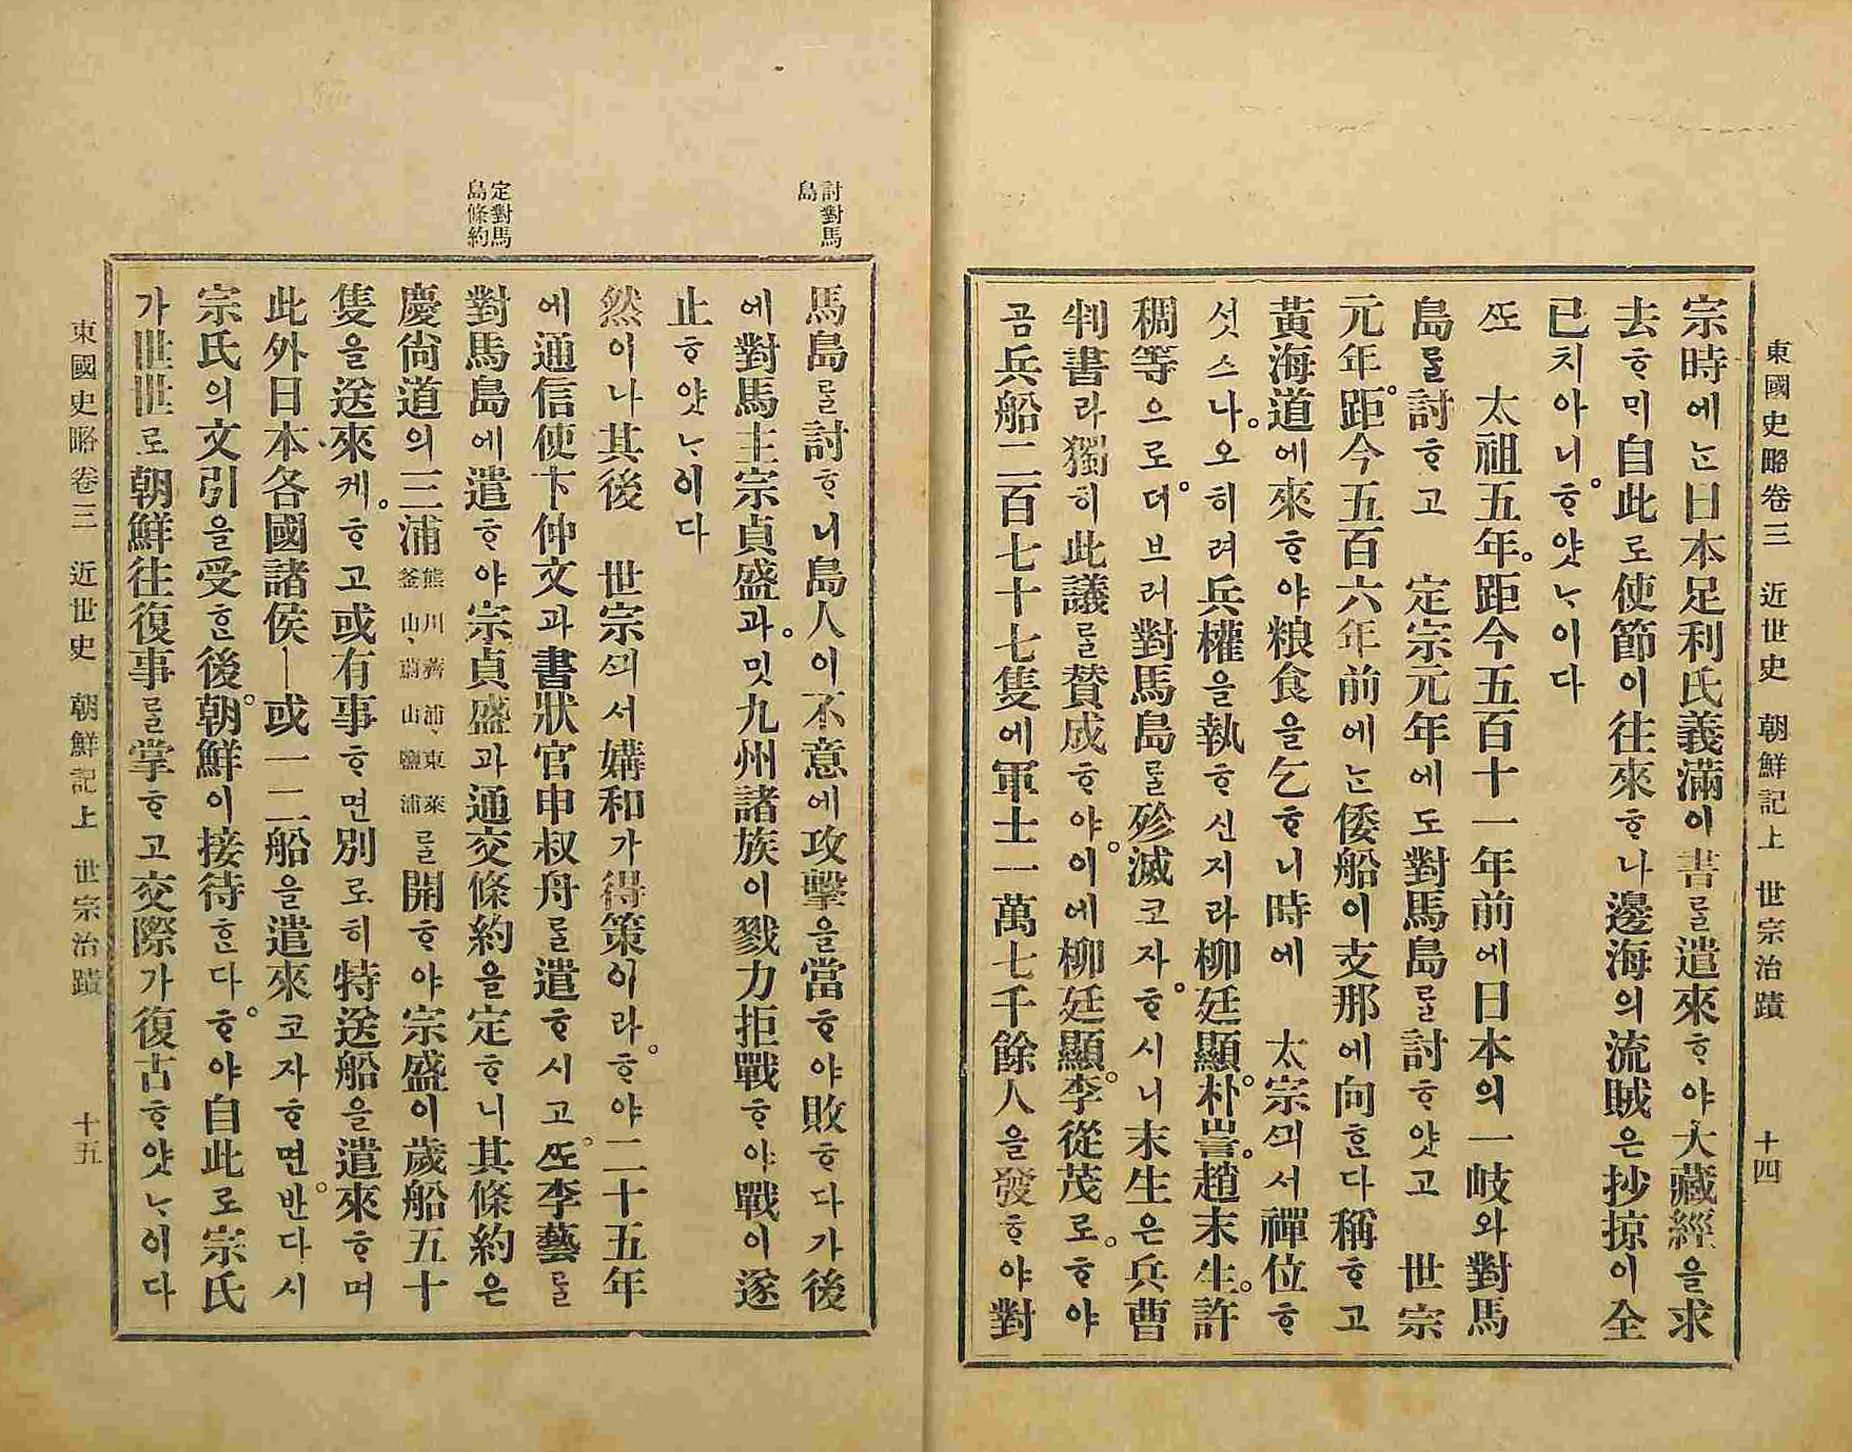 東國史略卷三 近世史 朝鮮記上 世宗治蹟 十四
宗時에ᄂᆞᆫ日本足利氏義滿이書ᄅᆞᆯ遣來ᄒᆞ야大藏經을求
去ᄒᆞᄆᆡ自此로使節이往來ᄒᆞ나邊海의流賊은抄掠이全
已치아니ᄒᆞ얏ᄂᆞ이다
ᄯᅩ 太祖五年。距今五百十一年前에日本의一岐와對馬
島ᄅᆞᆯ討ᄒᆞ고 定宗元年에도對馬島ᄅᆞᆯ討ᄒᆞ얏고 世宗
元年。距今五百六年前에ᄂᆞᆫ倭船이支那에向ᄒᆞᆫ다稱ᄒᆞ고
黃海道에來ᄒᆞ야粮食을乞ᄒᆞ니時에 太宗ᄭᅴ서禪位ᄒᆞ
섯스나。오히려兵權을執ᄒᆞ신지라柳廷顯。朴訔。趙末生。許
稠等으로。더브러對馬島ᄅᆞᆯ殄滅코자。ᄒᆞ시니末生은兵曹
判書라獨히此議ᄅᆞᆯ贊成ᄒᆞ야。이에柳廷顯。李從茂로。ᄒᆞ야
곰兵船二百七十七隻에軍士一萬七千餘人을發ᄒᆞ야對
討對馬
島
馬島ᄅᆞᆯ討ᄒᆞ니島人이不意에攻擊을當ᄒᆞ야敗ᄒᆞ다가後
에對馬主宗貞盛과。밋九州諸族이戮力拒戰ᄒᆞ야戰이遂
止ᄒᆞ얏ᄂᆞ이다
然이나其後 世宗ᄭᅴ서媾和가得策이라。ᄒᆞ야二十五年
에通信使卞仲文과書狀官申叔舟ᄅᆞᆯ遣ᄒᆞ시고。ᄯᅩ李藝ᄅᆞᆯ
定對馬
島條約
對馬島에遣ᄒᆞ야宗貞盛과通交條約을定ᄒᆞ니其條約은
慶尙道의三浦熊川薺浦、東萊釜山、蔚山鹽浦ᄅᆞᆯ開ᄒᆞ야宗盛이歲船五十
隻을送來케。ᄒᆞ고或有事ᄒᆞ면別로히特送船을遣來ᄒᆞ며
此外日本各國諸侯ㅣ或一二船을遣來코자ᄒᆞ면。반다시
宗氏의文引을受ᄒᆞᆫ後。朝鮮이接待ᄒᆞᆫ다。ᄒᆞ야自此로宗氏
가世世로朝鮮往復事ᄅᆞᆯ掌ᄒᆞ고交際가復古ᄒᆞ얏ᄂᆞ이다
東國史略卷三 近世史 朝鮮記上 世宗治蹟 十五